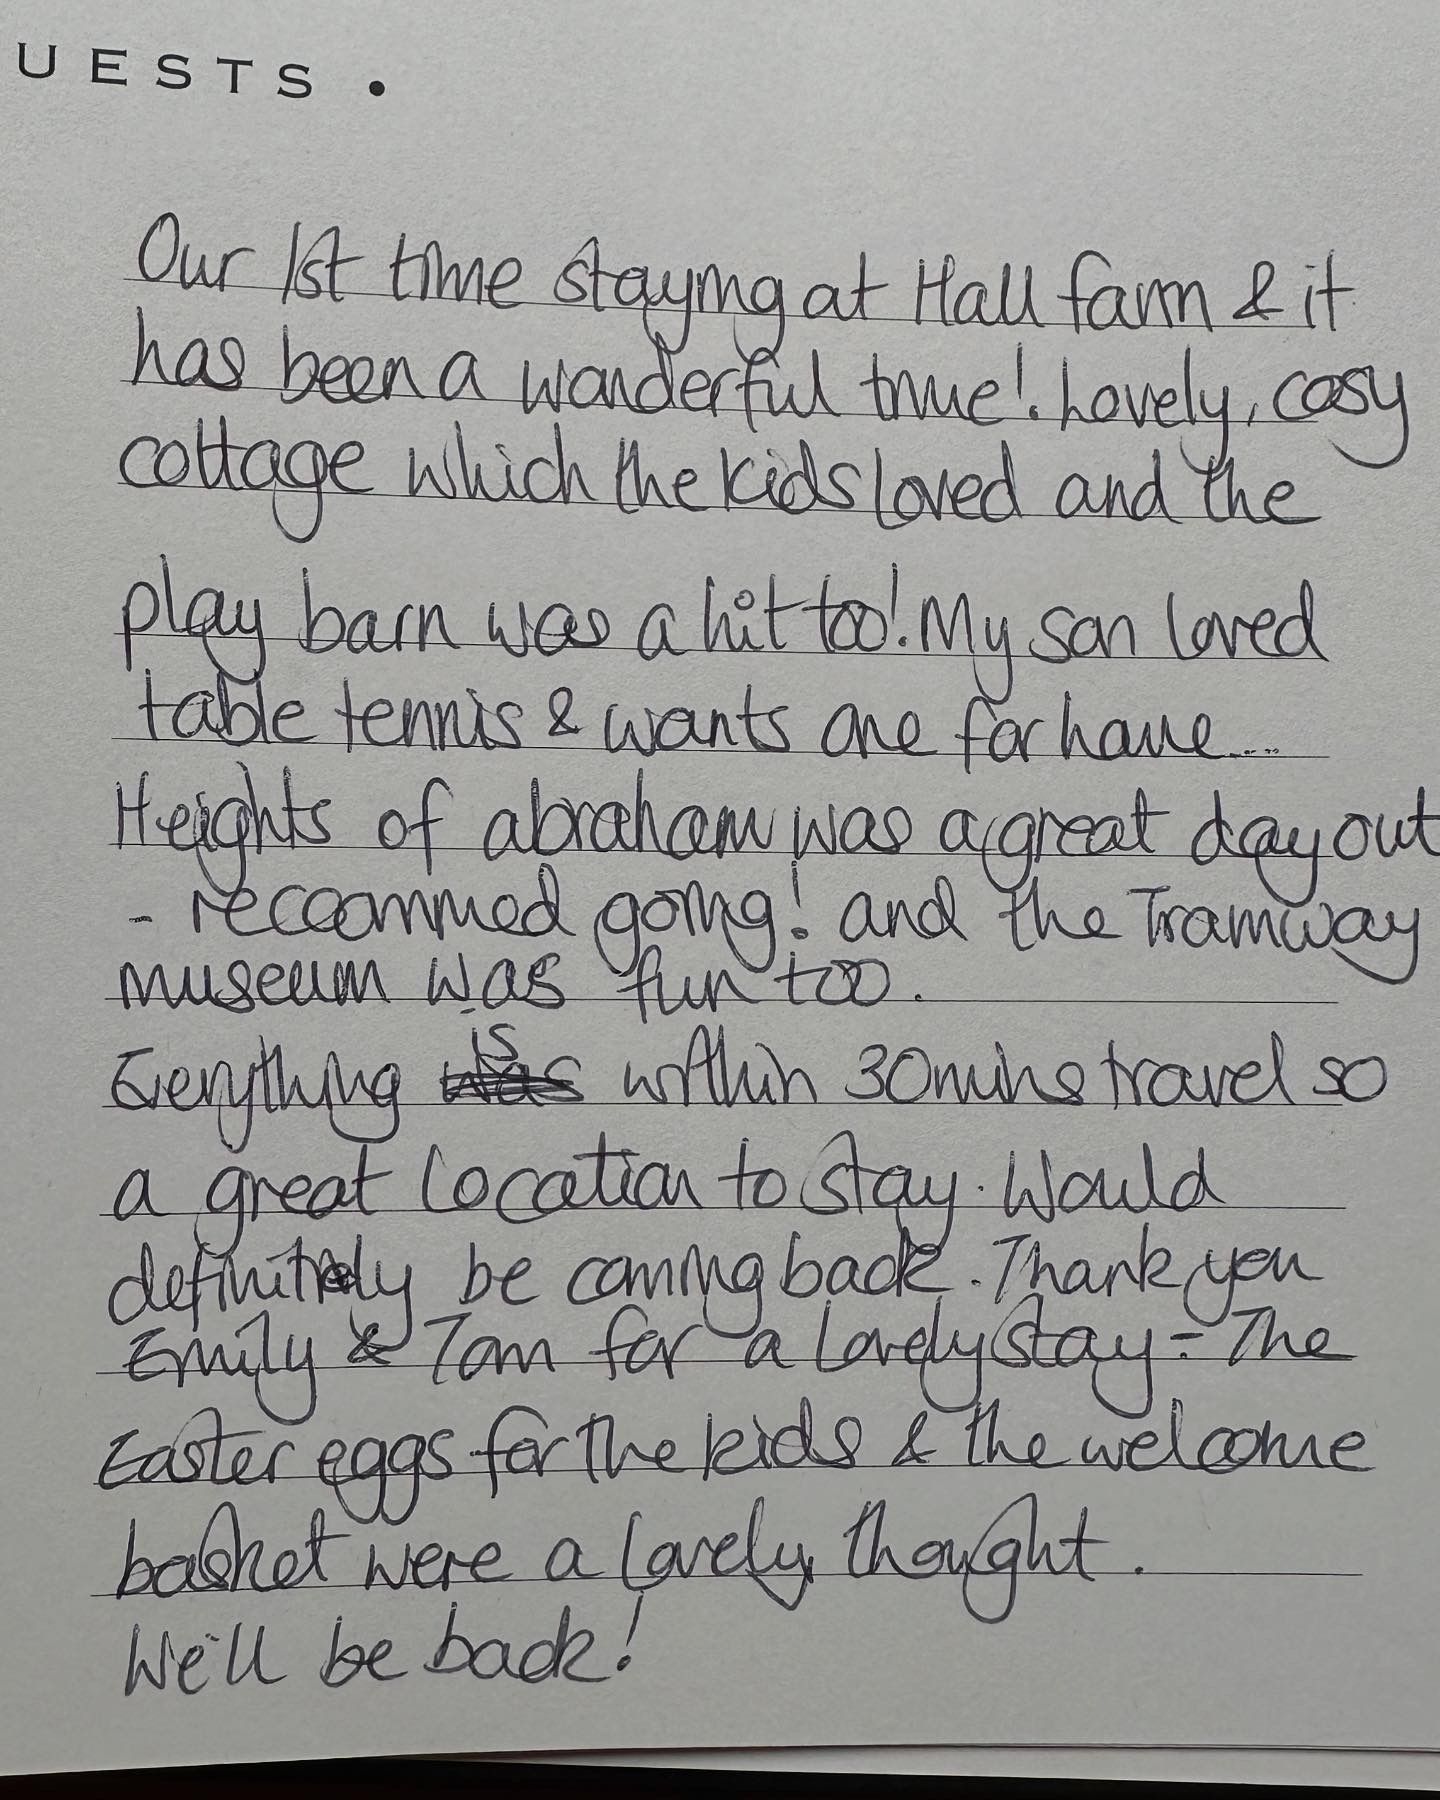 UESTS •
Our 1st time staying at Hall farm & it
has been a wonderful time! Lovely, cosy
cottage which the kids loved and the
play barn was a hit too! My son loved
table tennis & wants one for home...
Heights of abraham was a great day out
- recoommed going! and the Tramway
museum was fun too.
Everything is within 30mins travel so
a great location to stay. Would
definitely be coming back. Thank you
Emily & Tom for a lovely stay - The
Easter eggs for the kids & the welcome
basket were a lovely thought.
We'll be back!